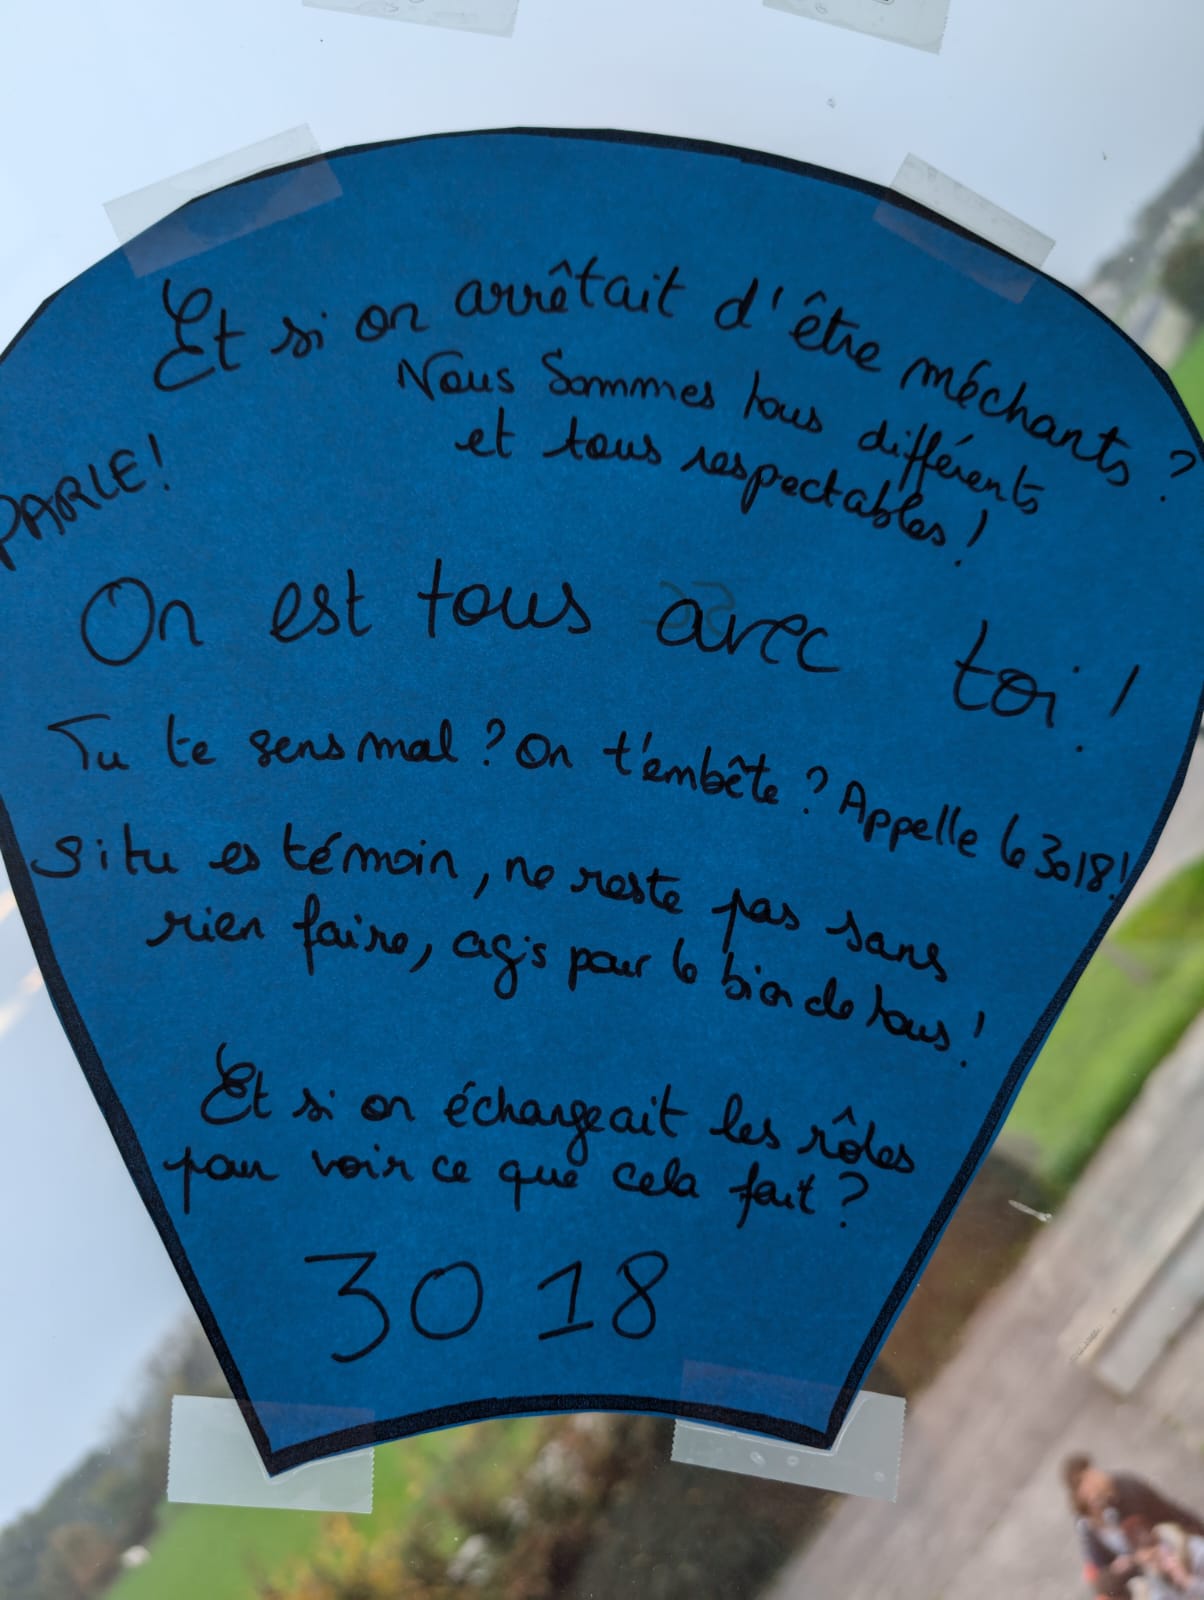 Et si on arrêtait d'être méchants ?
Nous Sommes tous différents
et tous respectables !
PARLE !
On est tous avec toi !
Tu te sens mal ? On t'embête ? Appelle le 3018 !
Si tu es témoin, ne reste pas sans
rien faire, agis pour le bien de tous !
Et si on échangeait les rôles
pour voir ce que cela fait ?
3018